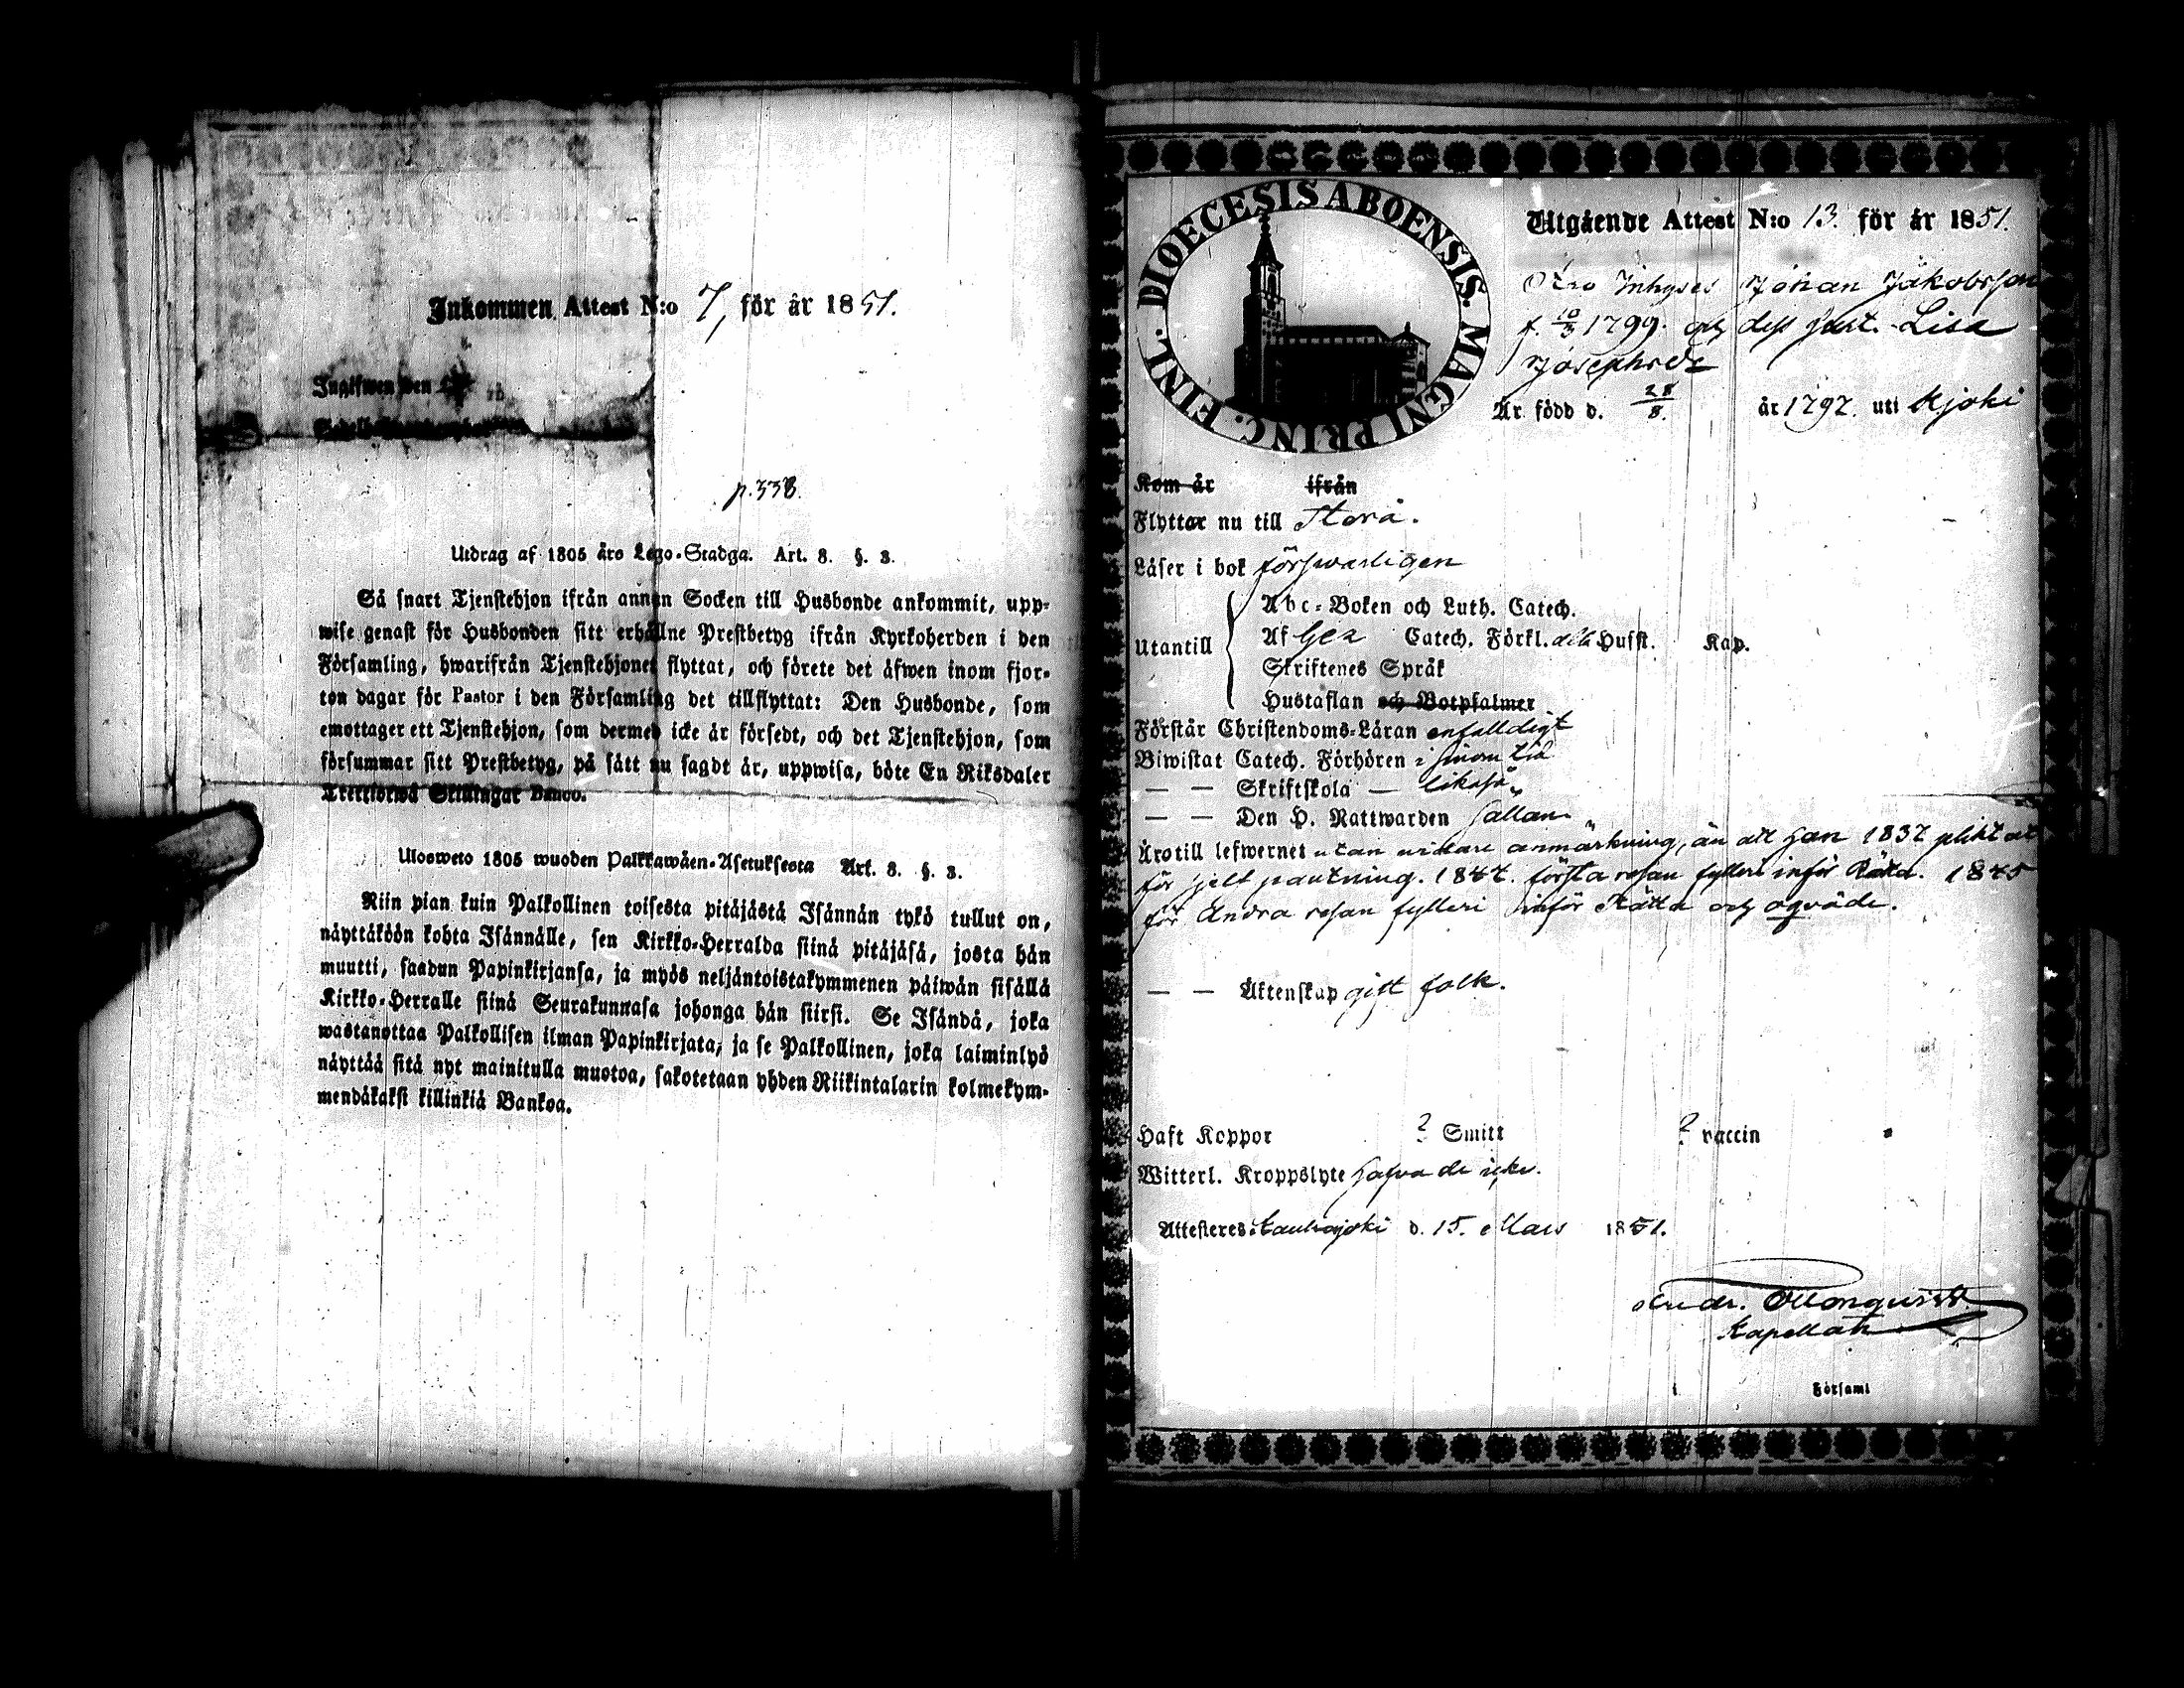 Inkommen Attest N:o 7, för år 1851.
Inskrifwen den
p. 338.
Utdrag af 1805 års Lego-Stadga. Art. 8. §. 3.
Så snart Tjenstehjon ifrån annan Socken till Husbonde ankommit, upp-
wise genast för Husbonden sitt erhållne Prestbetyg ifrån Kyrkoherden i den
Församling, hwarifrån Tjenstehjonet flyttat, och förete det äfwen inom fjor-
ton dagar för Pastor i den Församling det tillflyttat: Den Husbonde, som
emottager ett Tjenstehjon, som dermed icke är försedt, och det Tjenstehjon, som
försummar sitt Prestbetyg, på sätt nu sagdt är, uppwisa, böte En Riksdaler
Trettiotwå Skillingar Banco.
Uloswето 1805 wuoden Palkkawäen-Asetuksesta Art. 8. §. 3.
Niin pian kuin Palkollinen toisesta pitäjästä Isännän tykö tullut on,
näyttäköön kohta Isännälle, sen Kirkko-Herralda siinä pitäjäsä, josta hän
muutti, saadun Papinkirjansa, ja myös neljäntoistakymmenen päiwän sisällä
Kirkko-Herralle siinä Seurakunnasa johonga hän siirsi. Se Isändä, joka
wastanottaa Palkollisen ilman Papinkirjata, ja se Palkollinen, joka laiminlyö
näyttää sitä nyt mainitulla muotoa, sakotetaan yhden Riikintalarin kolmekym-
mendäkaksi killinkiä Bankoa.
DIOECESIS ABOENSIS. MAGNI PRINC. FINL.
Utgående Attest N:o 13. för år 1851.
Inhyses Johan Jakobsson
f. 10/3 1799. och dess hust. Lisa
Josephsdr
Är född d. 28/8. år 1797. uti Kjoki
Kom år ifrån
Flyttar nu till Storå.
Läser i bok försvarligen
Abc-Boken och Luth. Catech.
Utantill Af Catech. Förkl. Husst. Kap.
Skriftenes Språk
Hustaflan och Botpsalmer
Förstår Christendoms-Läran enfalldigt
Biwistat Catech. Förhören i sinom tid
— — Skriftskola — likaså
— — Den H. Nattwarden sällan
Äro till lefwernet utan vidare anmärkning, än att han 1837 pliktat
för sjelf pantning. 1844. första resan fylleri inför Rätta. 1845
för Andra resan fylleri inför Rätta och oqväde.
— — Äktenskap gift folk.
Haft Koppor ? Smitt ? vaccin
Witterl. Kroppslyte hafva de icke.
Attesteres: Kauhajoki d. 15. Mars 1851.
Kapellan
i Församl